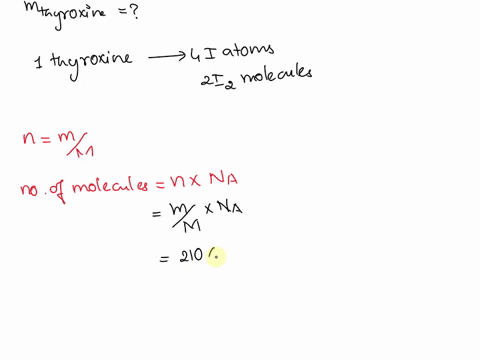 mthyroxine = ?
1 thyroxine → 4 I atoms
2I2 molecules
n = m/M
no. of molecules = n × NA
= m/M × NA
= 210